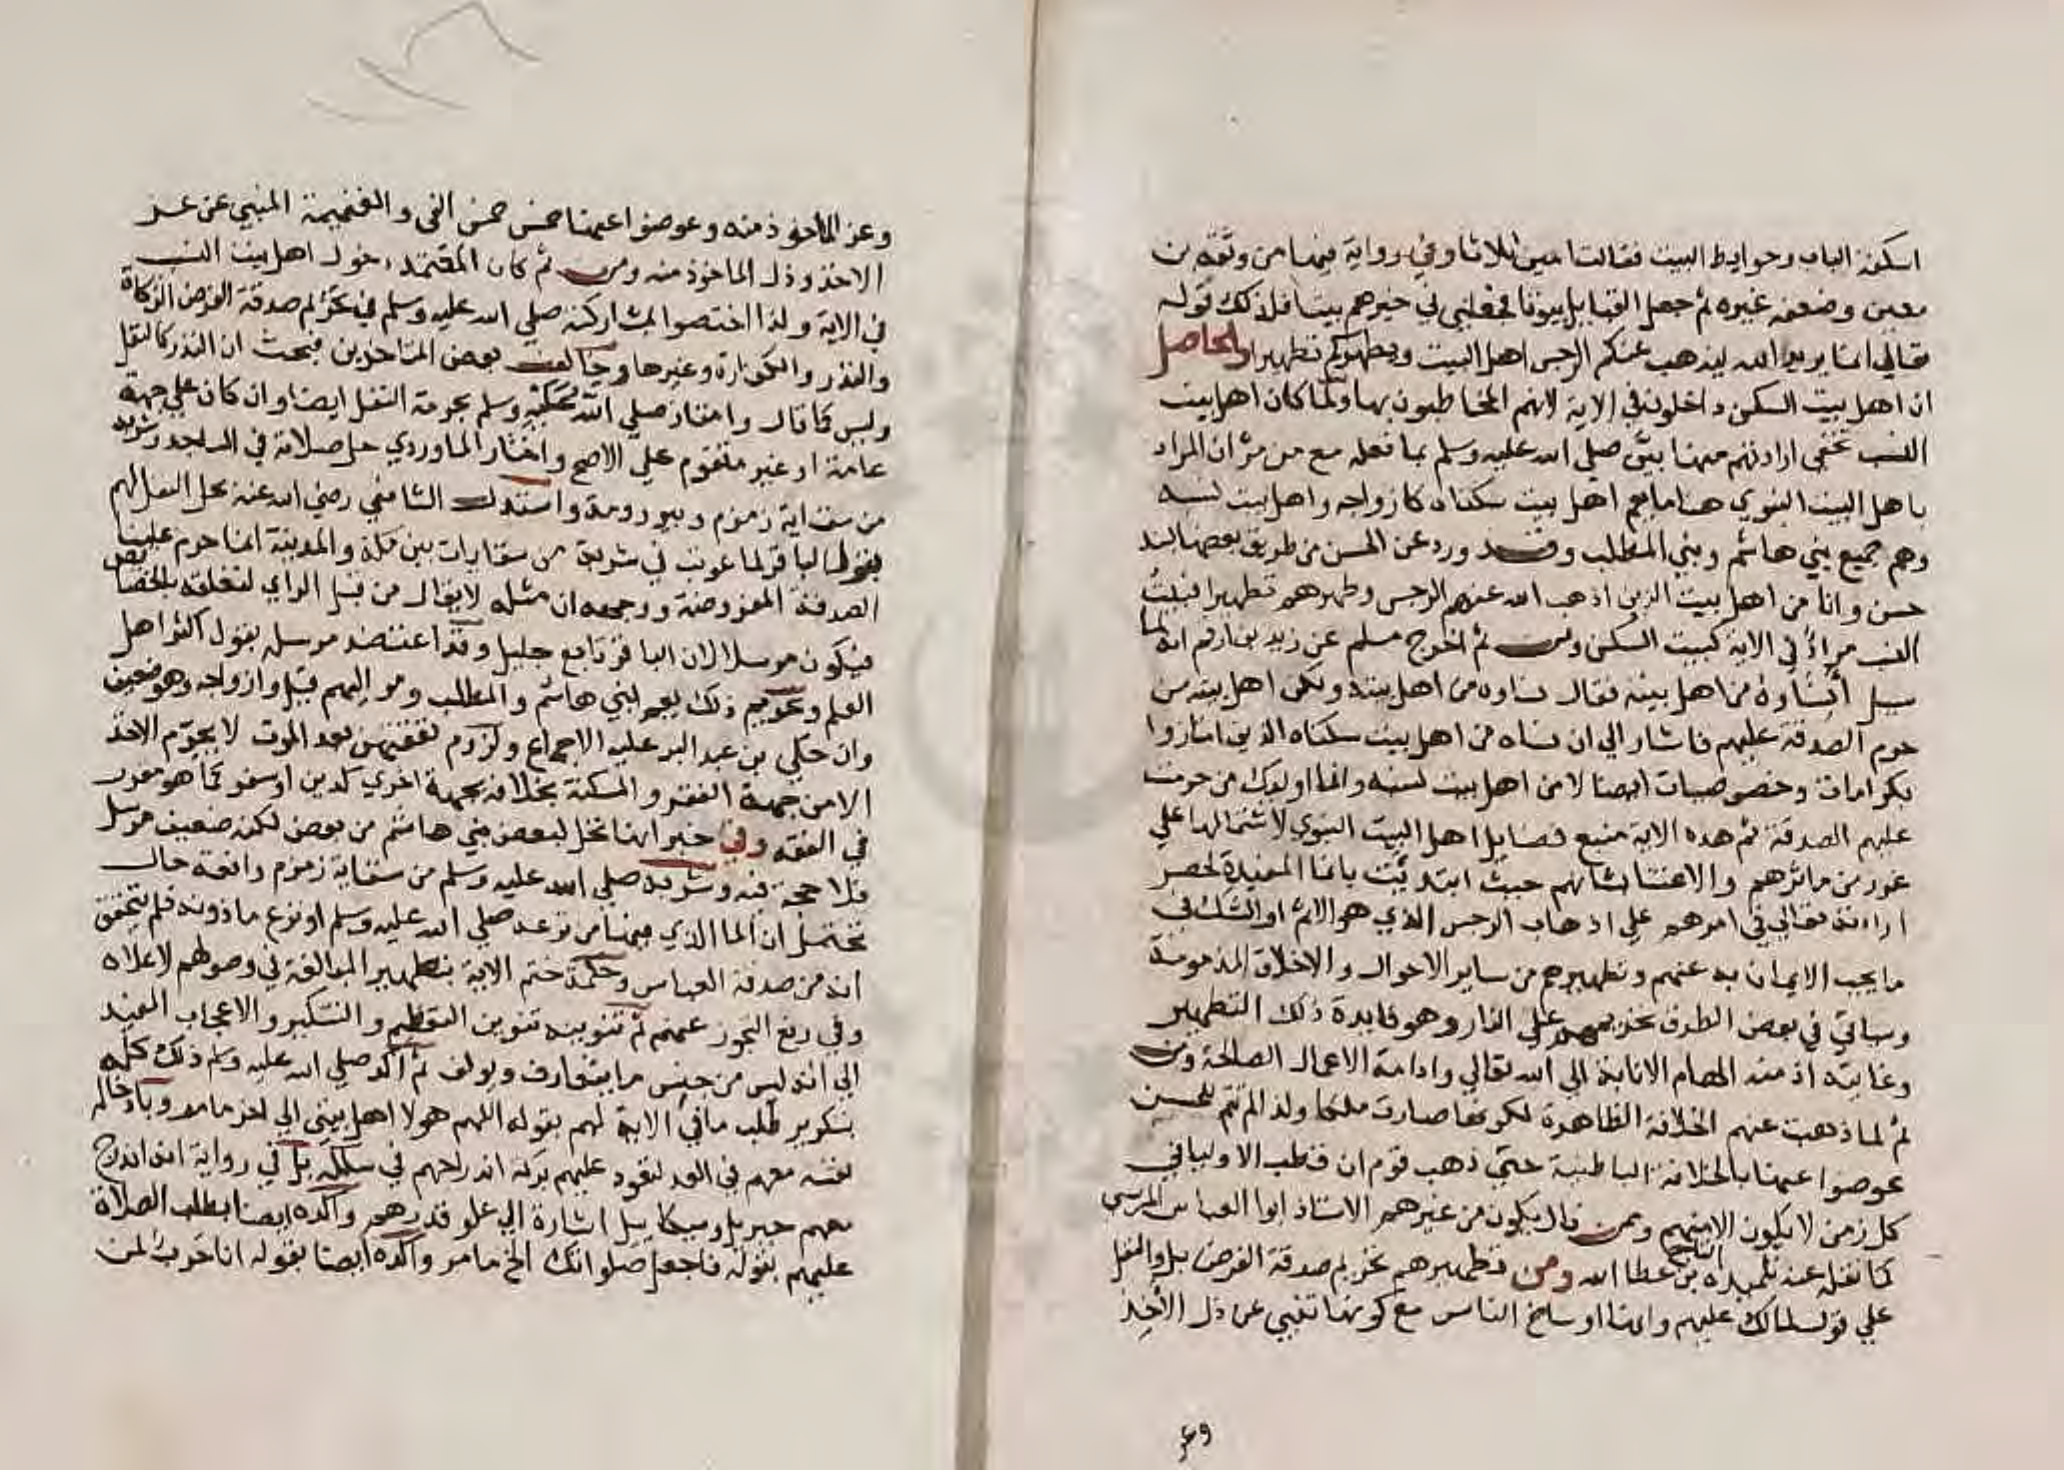 اسكفة الباب وحوايط البيت فقالت امين ثلاثا وفي رواية فيها من وثقه بن
معين وضعفه غيره ثم جعل القبايل بيوتا فجعلني في خيرهم بيتا فذلك قوله
تعالي انما يريد الله ليذهب عنكم الرجس اهل البيت ويطهركم تطهيرا والحاصل
ان اهل بيت السكن داخلون في الاية لانهم المخاطبون بها ولما كان اهل بيت
النسب تخفي ارادتهم منها بين صلي الله عليه وسلم بما فعله مع من مر ان المراد
باهل البيت النبوي هنا ما يعم اهل بيت سكناه كازواجه واهل بيت نسبه
وهم جميع بني هاشم وبني المطلب وقد ورد عن الحسن من طريق بعضها لسند
حسن وانا من اهل بيت الذين اذهب الله عنهم الرجس وطهرهم تطهيرا فبيت
النسب مراد في الاية كبيت السكن ومن ثم اخرج مسلم عن زيد بن ارقم انه لما
سيل أنساؤه من اهل بيته فقال نساوه من اهل بيته ولكن اهل بيته من
حرم الصدقة عليهم فاشار الي ان نساه من اهل بيت سكناه الذين امتازوا
بكرامات وخصوصيات ايضا لا من اهل بيت نسبه وانما اوليك من حرمت
عليهم الصدقة ثم هذه الاية منبع فضايل اهل البيت النبوي لاشتمالها علي
غرر من ماثرهم والاعتنا بشانهم حيث ابتديت بانما المفيدة لحصر
ارادته تعالي في امرهم علي اذهاب الرجس الذي هو الاثم او الشك في
ما يجب الايمان به عنهم وتطهيرهم من ساير الاحوال والاخلاق المذمومة
وسياتي في بعض الطرق تحريمهم علي النار وهو فايدة ذلك التطهير
وغايته اذ منه الهام الانابة الي الله تعالي وادامة الاعمال الصالحة ومن
ثم لما ذهبت عنهم الخلافة الظاهرة لكونها صارت ملكا ولذا لم تتم للحسن
عوضوا عنها بالخلافة الباطنية حتي ذهب قوم ان قطب الاوليا في
كل زمن لا يكون الا منهم وممن قال يكون من غيرهم الاستاذ ابوا العباس المرسي
كما نقله عنه تلميذه التاج بن عطا الله ومن تطهيرهم تحريم صدقة الفرض بل والنفل
علي قول لمالك عليهم وانها اوساخ الناس مع كونها تنبي عن ذل الأخِذ
وعز
وعز المأخوذ منه وعوضوا عنها خمس خمس الفي والغنيمة المنبي عن عز
الاخذ وذل الماخوذ منه ومن ثم كان المعتمد دخول اهل بيت النسب
في الاية ولذا اختصوا بمشاركته صلي الله عليه وسلم في تحريم صدقة الفرض الزكاة
والنذر والكفارة وغيرها وخالف بعض المتاخرين فبحث ان النذر كالنفل
وليس كما قال وامتاز صلي الله عليه وسلم بحرمة النفل ايضا وان كان علي جهة
عامة او غير متقوم علي الاصح واختار الماوردي حل صلاته في المساجد وشربه
من سقاية زمزم وبير رومة واستدل الشافعي رضي الله عنه بحل النفل لهم
بقول الباقر لما عوتب في شربه من سقايات بين مكة والمدينة انما حرم علينا
الصدقة المفروضة ووجهه ان مثله لا يقال من قبل الراي لتعلقه بالخصايص
فيكون مرسلا لان الباقر تابعي جليل وقد اعتضد مرسله بقول اكثر اهل
العلم وتحريم ذلك يعم بني هاشم والمطلب ومواليهم قيل وازواجه وهو ضعيف
وان حكي بن عبد البر عليه الاجماع ولزوم نفقتهن بعد الموت لا يحرم الاخذ
الا من جهة الفقر والمسكنة بخلافه بجهة اخري كدين او سفر كما هو مقرر
في الفقه وفي خبر انها تحل لبعض بني هاشم من بعض لكنه ضعيف مرسل
فلا حجة فيه وشربه صلي الله عليه وسلم من سقاية زمزم واقعة حال
تحتمل ان الما الذي فيها من نزعه صلي الله عليه وسلم او نزع ماذونه فلم يتحقق
انه من صدقة العباس وحكمة ختم الاية بتطهيرا المبالغة في وصولهم لاعلاه
وفي رفع التجوز عنهم ثم تنوينه تنوين التعظيم والتكثير والاعجاب المفيد
الي انه ليس من جنس ما يتعارف ويولف ثم اكد صلي الله عليه وسلم ذلك كله
بتكرير طلب ما في الاية لهم بقوله اللهم هولا اهل بيتي الي اخر ما مر وبادخاله
نفسه معهم في العد لتعود عليهم بركة اندراجهم في سلكه بل في رواية انه اندرج
معهم جبريل وميكاييل اشارة الي علو قدرهم واكده ايضا بطلب الصلاة
عليهم بقوله فاجعل صلواتك الخ ما مر واكده ايضا بقوله انا حرب لمن